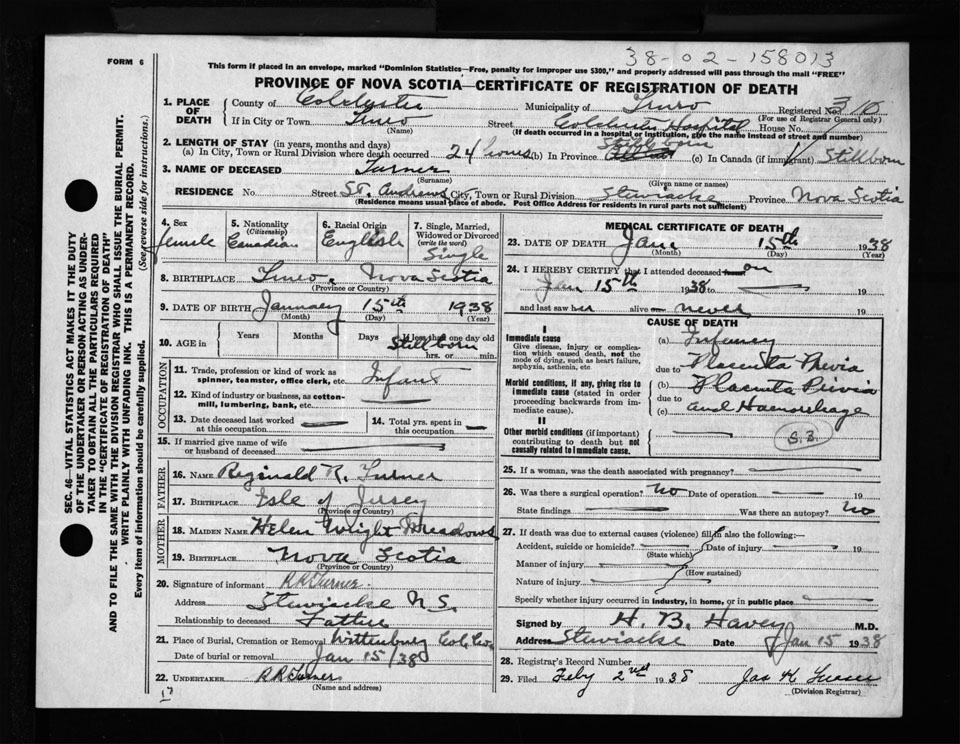 38-02-158013
FORM 6
This form if placed in an envelope, marked "Dominion Statistics—Free, penalty for improper use $300," and properly addressed will pass through the mail "FREE"
PROVINCE OF NOVA SCOTIA—CERTIFICATE OF REGISTRATION OF DEATH
1. PLACE OF DEATH
County of Colchester Municipality of Truro Registered No.
(For use of Registrar General only)
If in City or Town Truro Street Colchester Hospital House No.
(Name) (If death occurred in a hospital or institution, give the name instead of street and number)
2. LENGTH OF STAY (in years, months and days)
(a) In City, Town or Rural Division where death occurred 24 (b) In Province Stillborn (c) In Canada (if immigrant) Stillborn
3. NAME OF DECEASED Turner
(Surname) (Given name or names)
RESIDENCE No. Street St. Andrews City, Town or Rural Division Stewiacke Province Nova Scotia
(Residence means usual place of abode. Post Office Address for residents in rural parts not sufficient)
4. Sex female
5. Nationality (Citizenship) Canadian
6. Racial Origin English
7. Single, Married, Widowed or Divorced (write the word) Single
8. BIRTHPLACE Truro, Nova Scotia
(Province or Country)
9. DATE OF BIRTH January 15th 1938
(Month) (Day) (Year)
10. AGE in Years Months Days If less than one day old
Stillborn
hrs. or min.
OCCUPATION
11. Trade, profession or kind of work as spinner, teamster, office clerk, etc. Infant
12. Kind of industry or business, as cotton-mill, lumbering, bank, etc.
13. Date deceased last worked at this occupation
14. Total yrs. spent in this occupation
15. If married give name of wife or husband of deceased
FATHER
16. NAME Reginald R. Turner
17. BIRTHPLACE Isle of Jersey
(Province or Country)
MOTHER
18. MAIDEN NAME Helen Wright Meadows
19. BIRTHPLACE Nova Scotia
(Province or Country)
20. Signature of informant R R Turner
Address Stewiacke N.S.
Relationship to deceased Father
21. Place of Burial, Cremation or Removal Wittenburg Col. Co.
Date of burial or removal Jan 15/38
22. UNDERTAKER R R Turner
(Name and address)
MEDICAL CERTIFICATE OF DEATH
23. DATE OF DEATH Jan 15th 1938
(Month) (Day) (Year)
24. I HEREBY CERTIFY that I attended deceased from on
Jan 15th 1938 to 19
and last saw her alive on never 19
CAUSE OF DEATH
I
Immediate cause
Give disease, injury or complication which caused death, not the mode of dying, such as heart failure, asphyxia, asthenia, etc.
(a)
due to Placenta Previa
Morbid conditions, if any, giving rise to immediate cause (stated in order proceeding backwards from immediate cause).
(b) Placenta Previa
due to
(c) and Haemorrhage
II
Other morbid conditions (if important) contributing to death but not causally related to immediate cause.
S.B.
25. If a woman, was the death associated with pregnancy?
26. Was there a surgical operation? No Date of operation 19
State findings Was there an autopsy? No
27. If death was due to external causes (violence) fill in also the following:—
Accident, suicide or homicide? Date of injury 19
(State which)
Manner of injury
(How sustained)
Nature of injury
Specify whether injury occurred in industry, in home, or in public place
Signed by H. B. Havey M.D.
Address Stewiacke Date Jan 15 1938
28. Registrar's Record Number
29. Filed Feby 2nd 1938 Jas K
(Division Registrar)
SEC. 46—VITAL STATISTICS ACT MAKES IT THE DUTY
OF THE UNDERTAKER OR PERSON ACTING AS UNDER-
TAKER TO OBTAIN ALL THE PARTICULARS REQUIRED
IN THE "CERTIFICATE OF REGISTRATION OF DEATH"
AND TO FILE THE SAME WITH THE DIVISION REGISTRAR WHO SHALL ISSUE THE BURIAL PERMIT.
WRITE PLAINLY WITH UNFADING INK. THIS IS A PERMANENT RECORD.
Every item of information should be carefully supplied.
(See reverse side for instructions.)